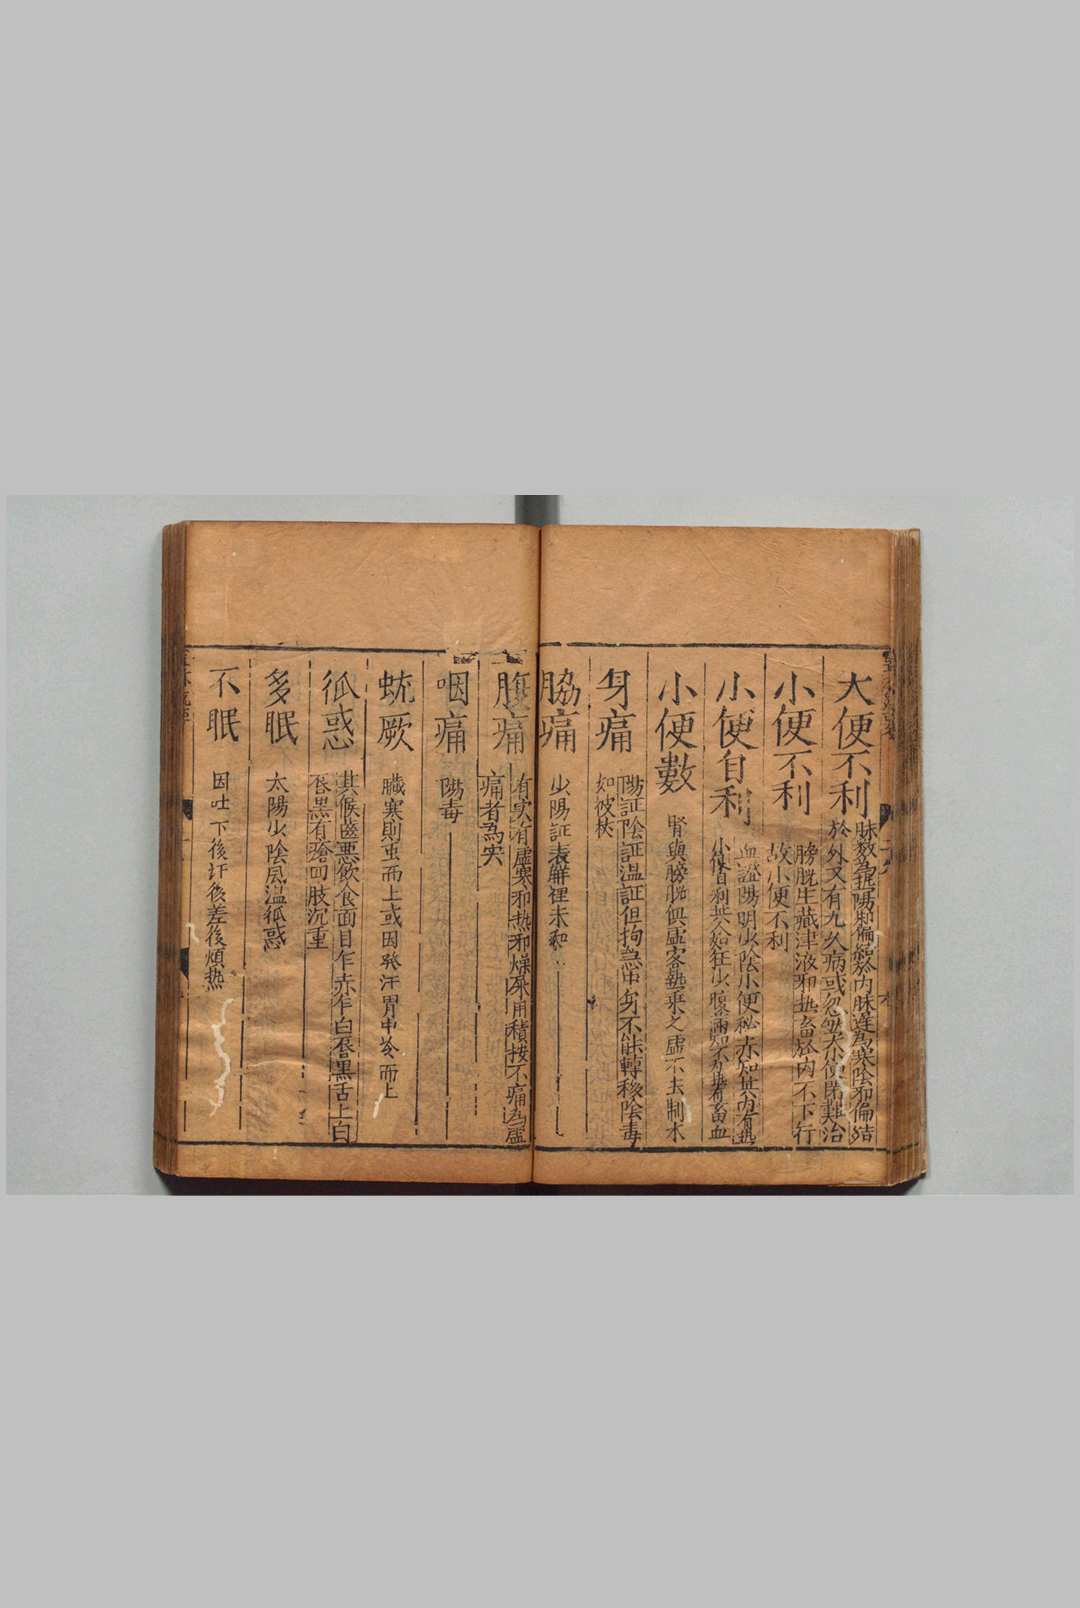 大便不利
脉數為
陽邪偏結於內脉遲為寒陰邪偏結
於外又有九久病或忽然大小便閉難治
小便不利
膀胱生藏津液邪热畜於内不下行
故小便不利
小便自利
血證陽明少陰小便秘赤知其内有热
小便自利
畜血
小便數
腎與膀胱俱虛客熱乘之虛不去制水
身痛
陽証陰証温証但拘急中身不能轉移陰毒
如彼杖
脇痛
少陽証表解裡未和
腹痛
有实有虛寒邪热邪燥屎用積按不痛為虛
痛者為实
咽痛
陽毒
蚘厥
臟寒則虫而上或因發汗胃中冷而上
狐惑
其候齒悪飲食面目乍赤乍白唇黑舌上白
唇黑有瘡四肢沉重
多眠
太陽少陰风温狐惑
不眠
因吐下後汗後差後煩热